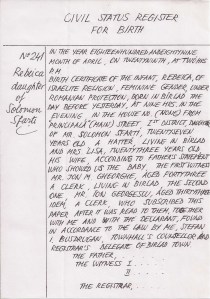 CIVIL STATUS REGISTER
FOR BIRTH
No 241
Rebeica
daughter
of
Solomon
Sfarti
IN THE YEAR EIGHTEEN HUNDRED AND EIGHTYNINE
MONTH OF APRIL, ON TWENTYFOURTH, AT TWO HRS
P.M.
BIRTH CERTIFICATE OF THE INFANT, REBEICA, OF
ISRAELITE RELIGION, FEMININE GENDER, UNDER
ROMANIAN PROTECTION, BORN IN BIRLAD THE
DAY BEFORE YESTERDAY, AT NINE HRS, IN THE
EVENING, IN THE HOUSE AT (NONE) FROM
PRINCIPALA (MAIN) STREET 1ST DISTRICT, DAUGHTER
OF MR SOLOMON SFARTI, TWENTYSEVEN
YEARS OLD A HATTER, LIVING IN BIRLAD
AND MRS LISA, TWENTYTHREE YEARS OLD
HIS WIFE, ACCORDING TO FATHER'S STATEMENT
WHO SHOWED US THE BABY. THE FIRST WITNESS
MR. ION M. GHEORGHE, AGED FORTYTHREE
A CLERK, LIVING IN BIRLAD, THE SECOND
ONE, MR ION GEORGESCU, AGED FORTYTHREE
IDEM, A CLERK, WHO SUBSCRIBED THIS
PAPER AFTER IT WAS READ TO THEM, TOGETHER
WITH ME AND WITH THE DECLARANT, FOUND
IN ACCORDANCE TO THE LAW BY ME, STEFAN
I. TOWNHALL'S COUNSELLOR AND
REGISTRAR'S DELEGATE OF BIRLAD TOWN
THE FATHER,
THE WITNESS I
II
THE REGISTRAR